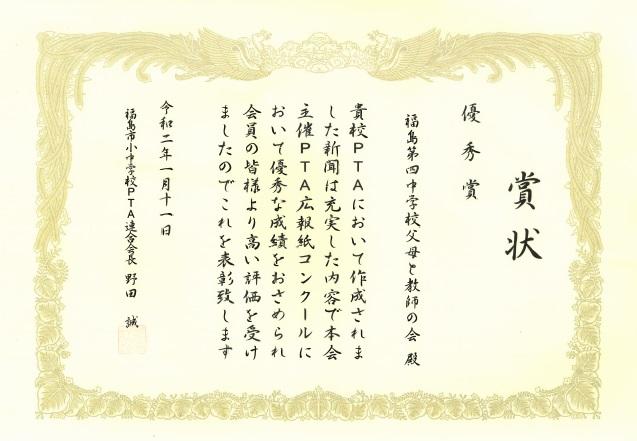 賞状
優秀賞
福島第四中学校父母と教師の会 殿
貴校PTAにおいて作成されま
した新聞は充実した内容で本会
主催PTA広報紙コンクールに
おいて優秀な成績をおさめられ
会員の皆様より高い評価を受け
ましたのでこれを表彰致します
令和二年一月十一日
福島市小中学校PTA連合会長 野田 誠